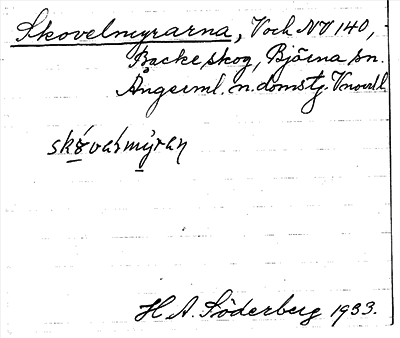 Skovelmyrarna, V och NV 140,
Backe skog, Björna sn.
Ångerml. n. domstj. V norrl l.
skøvałmỳran
H. A. Söderberg 1933.